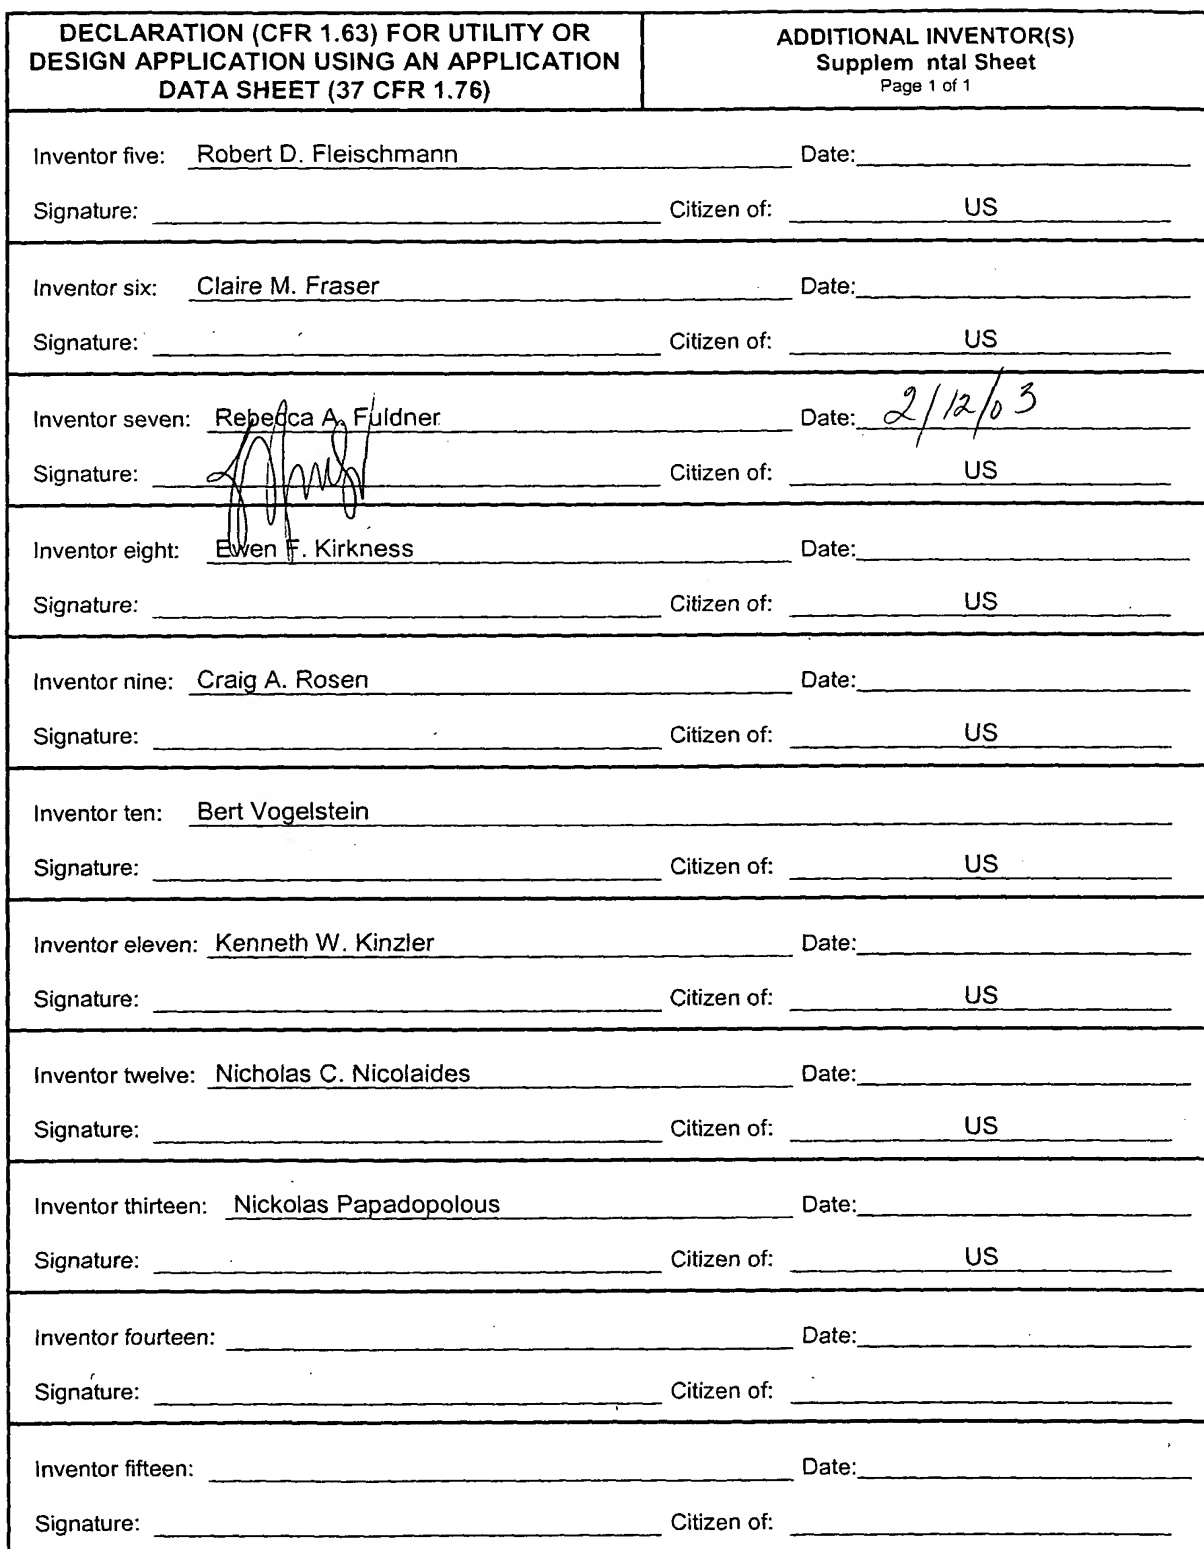 DECLARATION (CFR 1.63) FOR UTILITY OR
DESIGN APPLICATION USING AN APPLICATION
DATA SHEET (37 CFR 1.76)
ADDITIONAL INVENTOR(S)
Supplem ntal Sheet
Page 1 of 1
Inventor five: Robert D. Fleischmann Date:
Signature: Citizen of: US
Inventor six: Claire M. Fraser Date:
Signature: Citizen of: US
Inventor seven: Rebecca A. Fuldner Date: 2/12/03
Signature: Citizen of: US
Inventor eight: Ewen F. Kirkness Date:
Signature: Citizen of: US
Inventor nine: Craig A. Rosen Date:
Signature: Citizen of: US
Inventor ten: Bert Vogelstein
Signature: Citizen of: US
Inventor eleven: Kenneth W. Kinzler Date:
Signature: Citizen of: US
Inventor twelve: Nicholas C. Nicolaides Date:
Signature: Citizen of: US
Inventor thirteen: Nickolas Papadopolous Date:
Signature: Citizen of: US
Inventor fourteen: Date:
Signature: Citizen of:
Inventor fifteen: Date:
Signature: Citizen of: